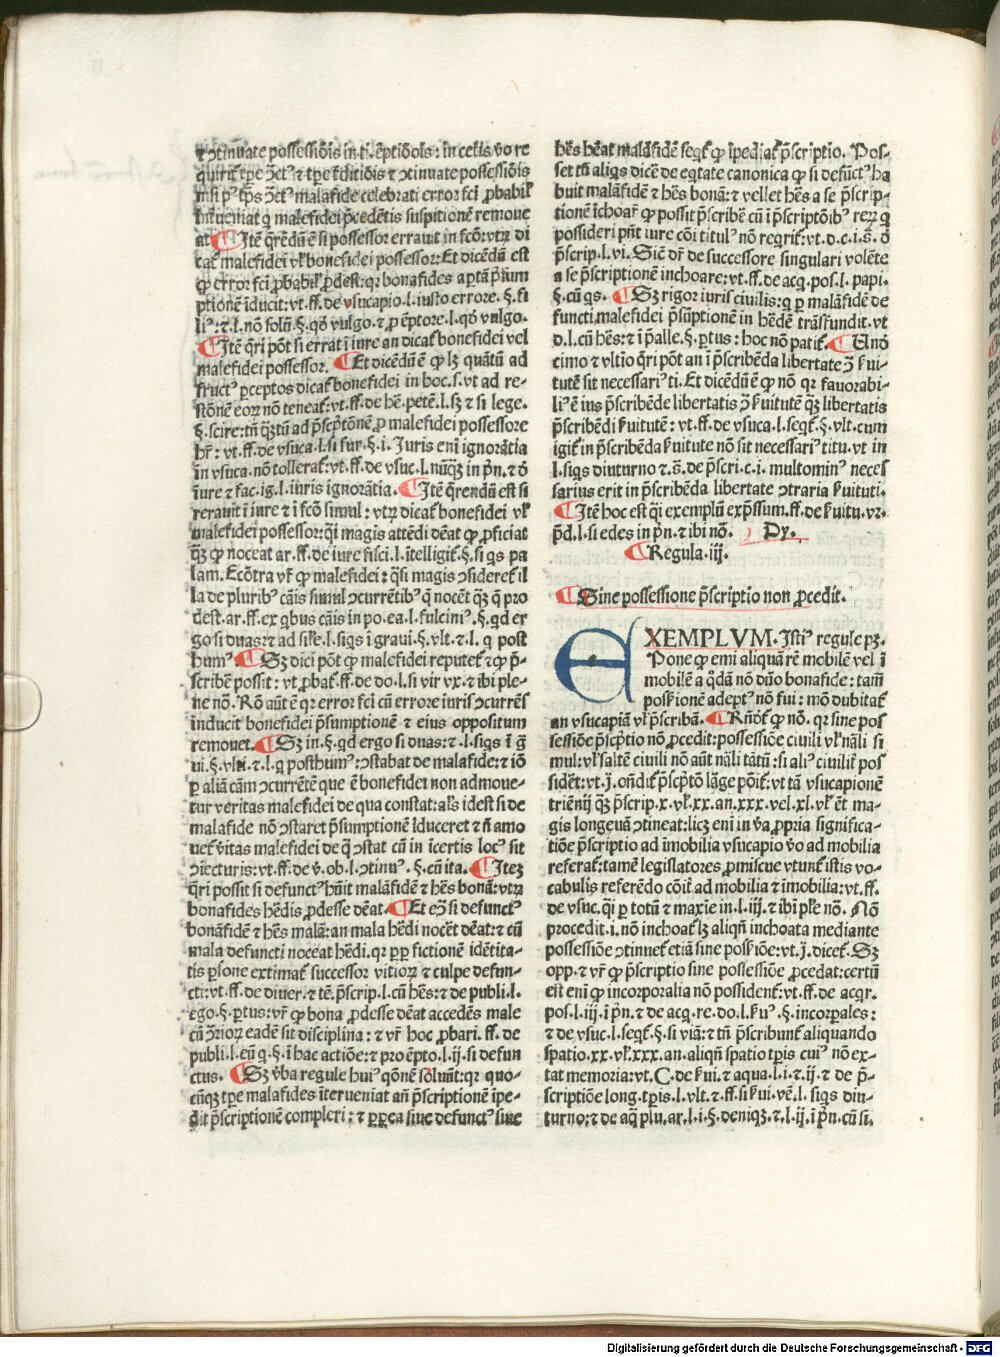 ⁊ ↄtinuate possessiōis in ti. ēptiōis: in ceteris ṽo re
quirit̃ tp̄e ↄ̄ctꝰ ⁊ tp̄e t̃ditiōis ⁊ ↄtinuate possessiōis
nisi pꝰ tp̄s ↄ̄ctꝰ malafide celebrati error fci ꝓbabil̓
inueniat q malefidei p̄cedētis suspitionē remoue
at ¶ Itē q̄rēdū ē si possessor errauit in fcō: vtꝝ di
cat̃ malefidei vl̓ bonefidei possessor: Et dicēdū est
ꝙ error fci ꝓbabil̓ ꝓdest: qꝛ bonafides aptā p̄sum
ptionē iducit: vt. ff. de vsucapio. l. iusto errore. §. fi
liꝰ: ⁊. l. nō solū. §. qđ vulgo. ⁊ ꝓ ēptore. l. qđ vulgo.
¶ Itē q̄ri pōt si errat̃ ī iure an dicat̃ bonefidei vel
malefidei possessor. ¶ Et dicēdū ē ꝙ lꝫ quātū ad
fructꝰ ꝑceptos dicat̃ bonefidei in hoc. s. vt ad re-
stōnē eoꝝ nō teneat̃: vt. ff. de hē. petē. l. sꝫ ⁊ si lege.
§. scire: tn̄ qꝫtū ad p̄scp̄tōnē ꝓ malefidei possessore
hr̃: vt. ff. de vsuca. l. si fur. §. i. Juris eni ignorātia
in vsuca. nō tollerat̃: vt. ff. de vsuc. l. nūqꝫ in pn̄. ⁊ đ
iure ⁊ fac. ig. l. iuris ignorātia. ¶ Itē q̄rendū est si
rerauit ī iure ⁊ ī fcō simul: vtꝝ dicat̃ bonefidei vl̓
malefidei possessor: qi magis attēdi dēat ꝙ ꝓficiat
qꝫ ꝙ noceat ar. ff. de iure fisci. l. itelligit̃. §. si qs pa
lam. Ecōtra vr̃ ꝙ malefidei: q̄si magis ↄsideret̃ il
la de pluribꝰ cāis simul ↄcurrētibꝰ q̄ nocēt qꝫ q̄ pro
dest. ar. ff. ex qbus cāis in po. ea. l. fulciniꝰ. §. qđ er
go si duas: ⁊ ad sil̓e. l. siqs i graui. §. vlt. ⁊ l. q post
humꝰ ¶ Sꝫ dici pōt ꝙ malefidei reputet̃ ⁊ ꝙ p̄-
scribē possit: vt ꝓbat̃. ff. de do. l. si vir vx. ⁊ ibi ple-
ne nō. Rō aūt ē qꝛ error fci cū errore iuris ↄcurrēs
inducit bonefidei p̄sumptionē ⁊ eius oppositum
remouet. ¶ Sꝫ in. §. qđ ergo si duas: ⁊. l. siqs i g̃
ui. §. vlti. ⁊. l. q posthumꝰ: ↄstabat de malafide: ⁊ iō
ꝑ aliā cām ↄcurrētē que ē bonefidei non admoue-
tur veritas malefidei de qua constat: al̓s idest si de
malafide nō ↄstaret p̄sumptionē iduceret ⁊ n̄ amo
uet̃ ṽitas malefidei de q̄ ↄstat cū in icertis locꝰ sit
ↄiecturis: vt. ff. de ṽ. ob. l. ↄtinuꝰ. §. cū ita. ¶ Iteꝫ
q̄ri possit si defunctꝰ hūit malāfidē ⁊ hēs bonā: vtꝝ
bonafides hēdis ꝓdesse dēat. ¶ Et eↄ̄ si defunctꝰ
bonāfidē ⁊ hēs malā: an mala hēdi nocēt dēat: ⁊ cū
mala defuncti noceat hēdi. qꝛ ꝑp fictionē idētita-
tis ꝑsone extimat̃ successor vitioꝝ ⁊ culpe defun-
cti: vt. ff. de diuer. ⁊ tē. p̄scrip. l. cū hēs: ⁊ de publi. l.
ego. §. ꝑtus: vr̃ ꝙ bona ꝓdesse dēat accedēs male
cū ↄ̄rioꝝ eadē sit disciplina: ⁊ vr̃ hoc ꝓbari. ff. de
publi. l. eū q. §. i hac actiōe: ⁊ pro ēpto. l. ij. si defun
ctus. ¶ Sꝫ ṽba regule huiꝰ qōnē soluūt: qꝛ quo-
cūqꝫ tp̄e malafides iterueniat an̄ p̄scriptionē ipe-
dit p̄scriptionē compleri: ⁊ ꝑꝑea siue defunctꝰ siue
hēs hēat malāfidē seqt̃ ꝙ ipediat̃ p̄scriptio. Pos-
set tn̄ aliqs dicē de eqtate canonica ꝙ si defūctꝰ ha
buit malāfidē ⁊ hēs bonā: ⁊ vellet hēs a se p̄scrip-
tionē ichoar̃ ꝙ possit p̄scribē cū i p̄scriptōibꝰ reꝝ q
possideri pn̄t iure cōi titulꝰ nō reqrit̃: vt. d. c. i. s̄. đ
p̄scrip. l. vi. Siē dr̃ de successore singulari volēte
a se p̄scriptionē inchoare: vt. ff. de acq. pos. l. papi.
§. cū qs. ¶ Sꝫ rigor iuris ciuilis: q ꝑ malāfidē de
functi malefidei p̄sūptionē in hēdē trāsfundit. vt
d. l. cū hēs: ⁊ i p̄alle. §. ꝑtus: hoc nō patit̃. ¶ Uno
cimo ⁊ vltio q̄ri pōt an i p̄scribēda libertate ↄ̄ ẜui-
tutē sit necessariꝰ ti. Et dicēdū ē ꝙ nō qꝛ fauorabi-
liꝰ ē ius p̄scribēde libertatis ↄ̄ ẜuitutē qꝫ libertatis
p̄scribēdi ẜuitutē: vt. ff. de vsuca. l. seqt̃. §. vlt. cum
igit̃ in p̄scribēda ẜuitute nō sit necessariꝰ titu. vt in
l. siqs diuturno ⁊. s̄. de p̄scri. c. i. multominꝰ neces
sarius erit in p̄scribēda libertate ↄtraria ẜuituti.
¶ Itē hoc est qi exemplū exp̄ssum. ff. de ẜuitu. vꝛ.
p̄d. l. si edes in pn̄. ⁊ ibi nō. Dy.
¶ Regula. iij.
¶ Sine possessione p̄scriptio non ꝓcedit.
EXEMPLVM. Istiꝰ regule pꝫ.
Pone ꝙ emi aliquā rē mobilē vel i
mobilē a q̄dā nō dn̄o bonafide: tam̄
possẜionē adeptꝰ nō fui: mō dubitat̃
an vsucapiā vl̓ p̄scribā. ¶ Rn̄det̃ ꝙ nō. qꝛ sine pos
sessiōe p̄scp̄tio nō ꝓcedit: possessiōe ciuili vl̓ nāli si
mul: vl̓ saltē ciuili nō aūt nāli tātū: si aliꝰ ciuilit̃ pos
sidet: vt. j. on̄dit̃ p̄scp̄tō lāge pōit̃: vt tā vsucapionē
triēnij qꝫ p̄scrip. x. vl̓. xx. an. xxx. vel. xl. vl̓ ēt ma-
gis longeuā ↄtineat: licꝫ eni in ṽa ꝓpria significa-
tiōe p̄scriptio ad imobilia vsucapio ṽo ad mobilia
referat̃: tamē legislatores ꝓmiscue vtunt̃ istis vo-
cabulis referēdo cōit̃ ad mobilia ⁊ imobilia: vt. ff.
de vsuc. qi ꝑ totū ⁊ maxie in. l. iij. ⁊ ibi ple nō. Nō
procedit. i. nō inchoat̃ lꝫ aliqn̄ inchoata mediante
possessiōe ↄtinuet̃ etiā sine posẜiōe: vt. j. dicet̃. Sꝫ
opp. ⁊ vr̃ ꝙ p̄scriptio sine possessiōe ꝓcedat: certū
est eni ꝙ incorporalia nō possident̃: vt. ff. de acqr.
pos. l. iij. i pn̄. ⁊ de acq. re. do. l. ẜuꝰ. §. incorꝑales:
⁊ de vsuc. l. seqt̃. §. si viā: ⁊ tn̄ p̄scribunt̃ aliquando
spatio. xx. vl̓. xxx. an. aliqn̄ spatio tꝑis cuiꝰ nō ex-
tat memoria: vt. C. de ẜui. ⁊ aqua. l. i. ⁊. ij. ⁊ de p̄-
scriptiōe long. tꝑis. l. vlt. ⁊. ff. si ẜui. vē. l. siqs diu-
turno: ⁊ de aq̄ plu. ar. l. i. §. deniqꝫ. ⁊. l. ij. i pn̄. cū si.
Digitalisierung gefördert durch die Deutsche Forschungsgemeinschaft - DFG